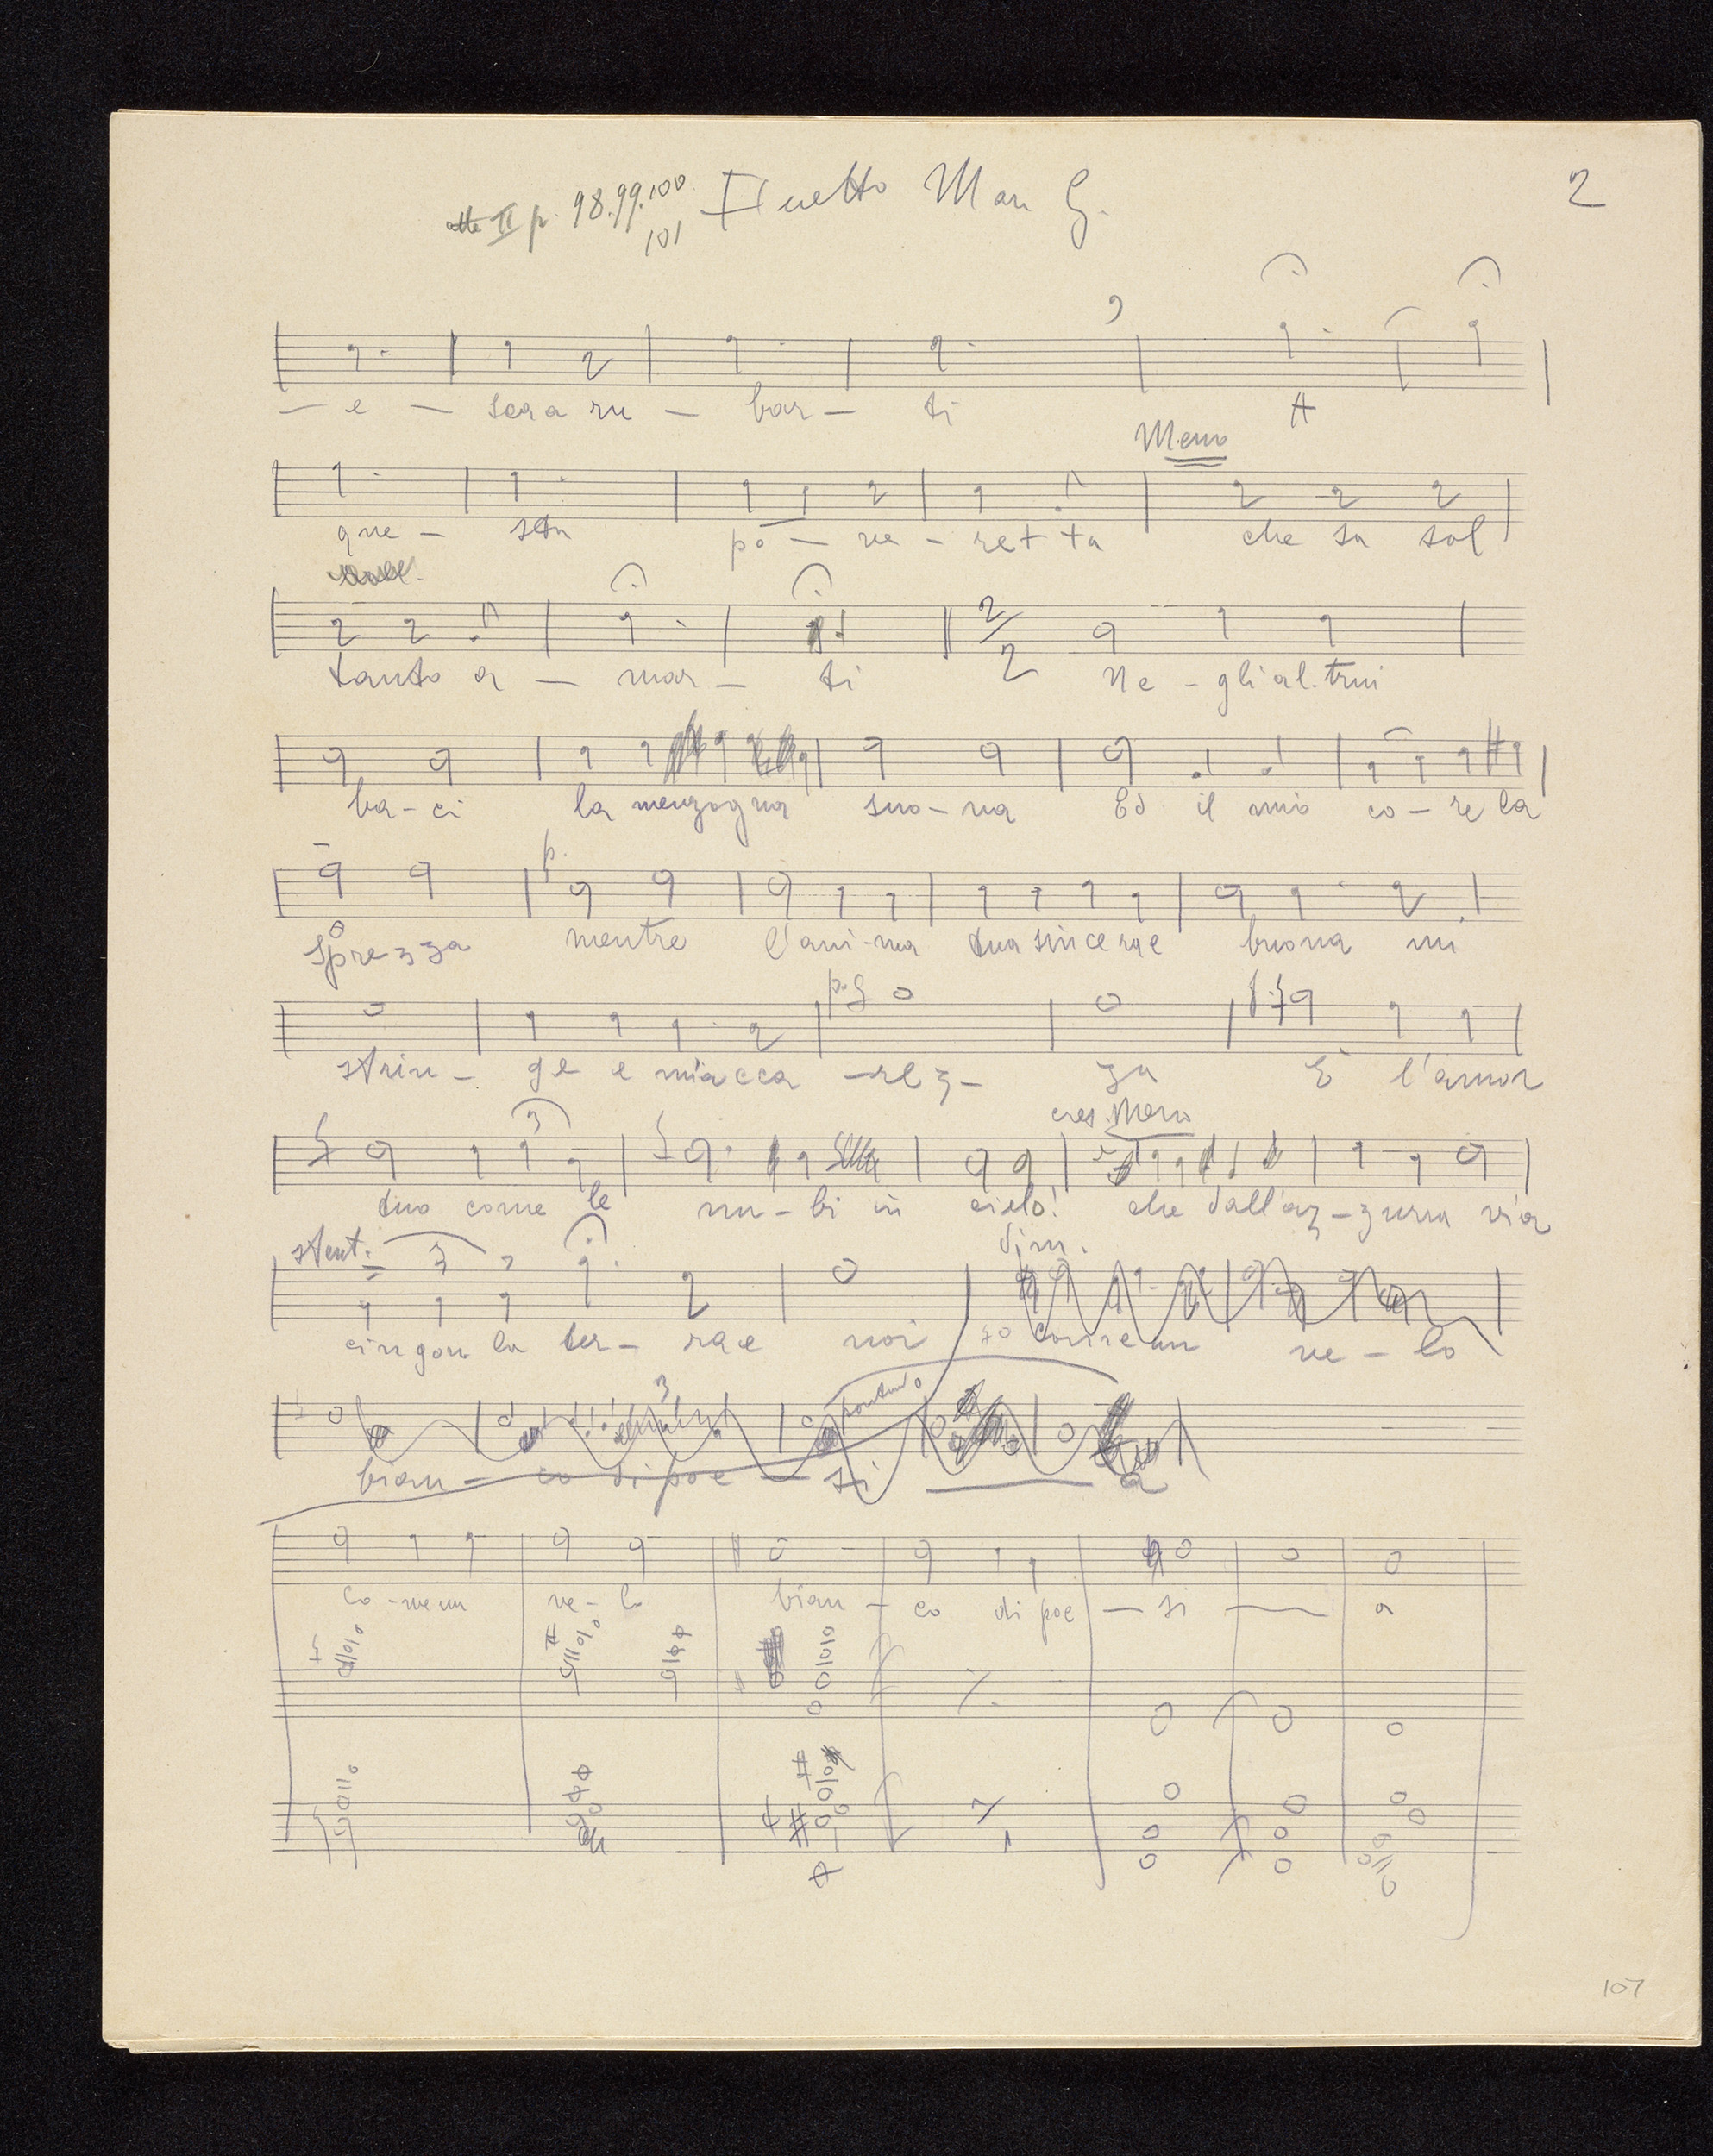 atto II p. 98.99.100
101
Duetto Man G.
2
— e — sera ru — bar — ti A
Meno
que — sta po — ve — ret ta che sa sol
tanto a — mar — ti 2/2 Ne — gli al. trui
ba — ci la menzogna suo — na Ed il mio co — re la
p.
sprezza mentre l'ani-ma tua sincera e buona mi
strin — ge e m'acca — rez — za È l'amor
cres. Meno
3
tuo come le nu — bi in cielo! che dall'az — zurra via
stent. 3 dim.
cingon la ter — ra e noi so covre un ve — lo
3 portando
bian — co di poe — si — a
co — vre un ve — lo bian — co di poe — si — a
107